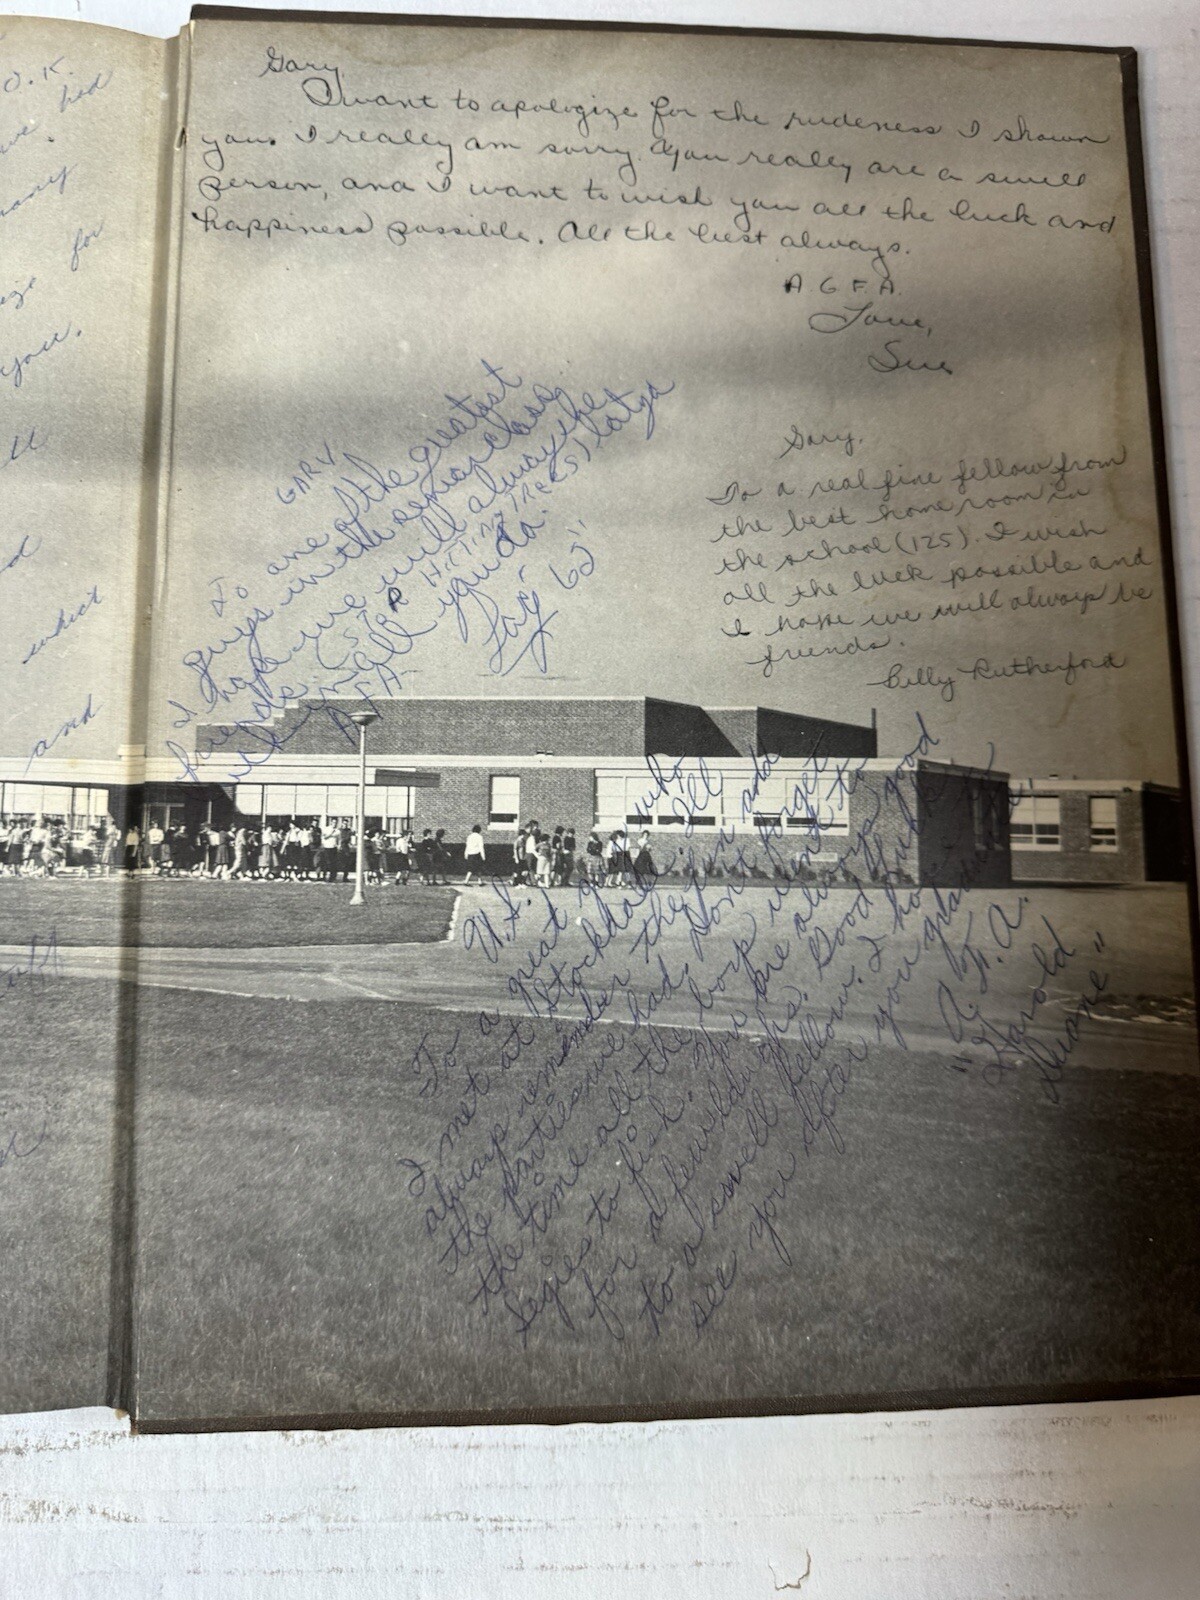 O.K.
we had
many
for
you.
ll
d
what
and
Gary
I want to apologize for the rudeness I shown
you. I really am sorry. You really are a swell
person, and I want to wish you all the luck and
happiness possible. All the best always.
A.G.F.A.
Love,
Sue
GARY
To one of the greatest
guys in the senior class
I hope we will always be
friends (STAR HITING TREES) lots a
luck in all you do.
AFA
62"
Gary,
To a real fine fellow from
the best home room in
the school (125). I wish
all the luck possible and
I hope we will always be
friends.
Billy Rutherford
To a great guy who
I met at Stockdale. I'll
always remember the fun and
the parties we had. Don't forget
the time all the boys went to
to fish. You are always good
for a few laughs. Good luck
to a swell fellow. I hope to
see you after you graduate
"A.F.A.
Harold
Duane"